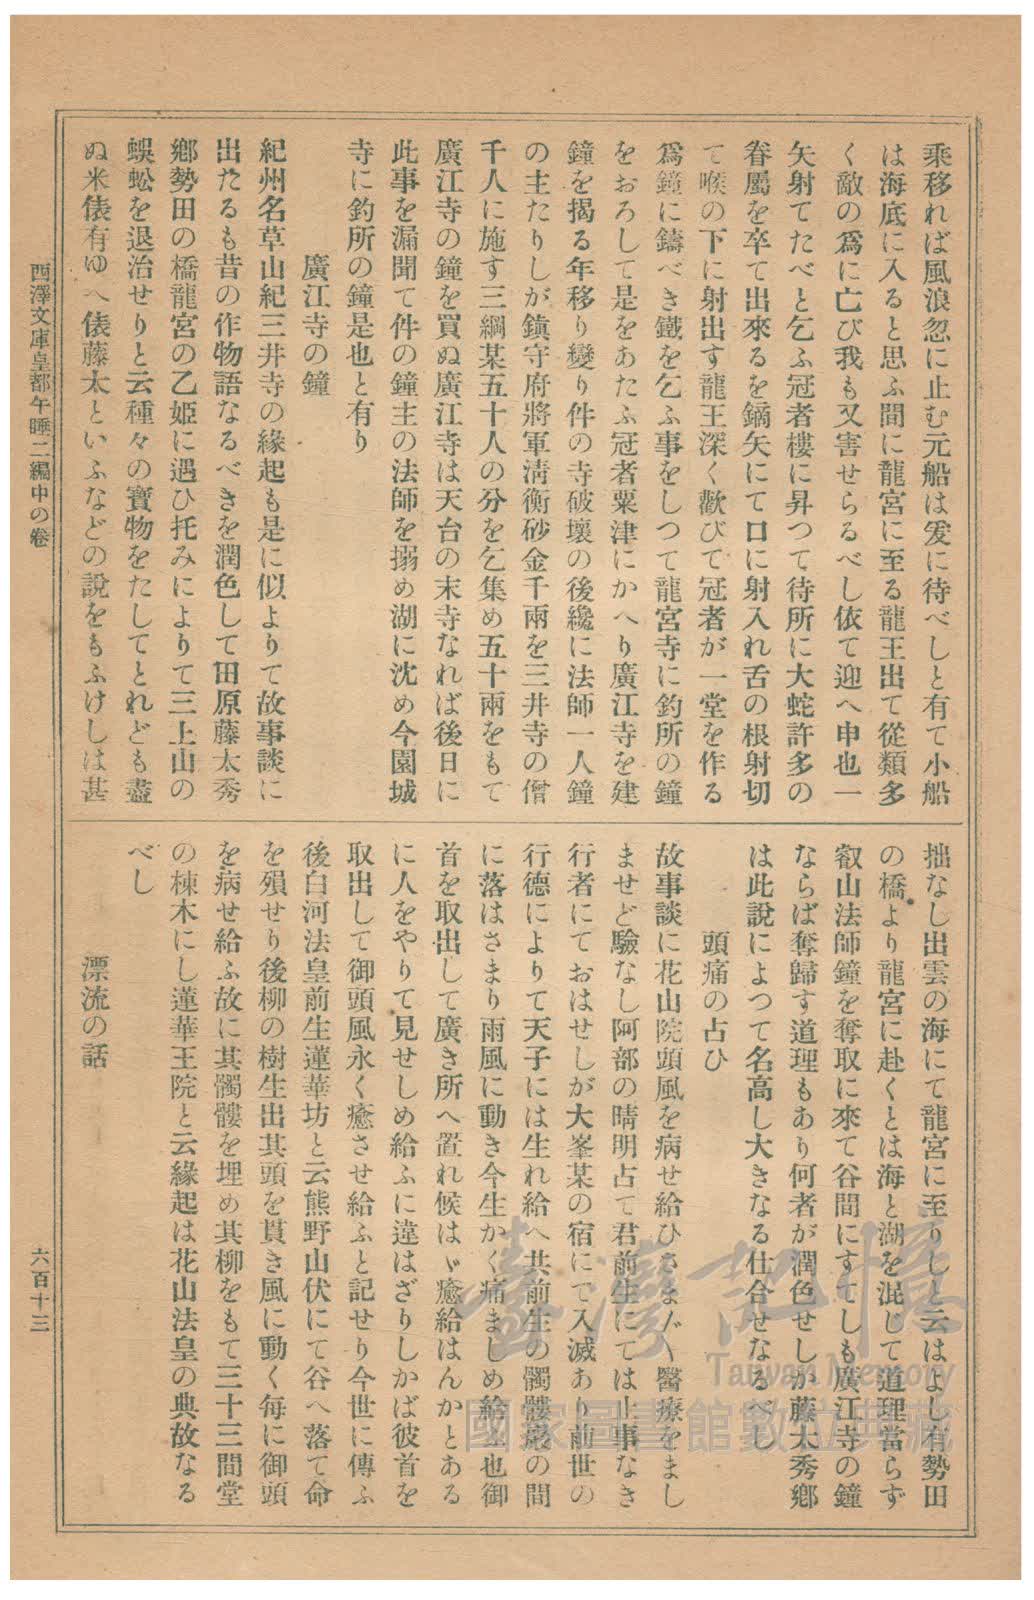 乘移れば風浪忽に止む元船は爰に待べしと有て小船
は海底に入ると思ふ間に龍宮に至る龍王出て從類多
く敵の爲に亡び我も又害せらるべし依て迎へ申也一
矢射てたべと乞ふ冠者樓に昇つて待所に大蛇許多の
眷屬を卒て出來るを鏑矢にて口に射入れ舌の根射切
て喉の下に射出す龍王深く歡びて冠者が一堂を作る
爲鐘に鑄べき鐵を乞ふ事をしつて龍宮寺に釣所の鐘
をおろして是をあたふ冠者粟津にかへり廣江寺を建
鐘を掲る年移り變り件の寺破壞の後纔に法師一人鐘
の主たりしが鎭守府將軍淸衡砂金千兩を三井寺の僧
千人に施す三綱某五十人の分を乞集め五十兩をもて
廣江寺の鐘を買ぬ廣江寺は天台の末寺なれば後日に
此事を漏聞て件の鐘主の法師を搦め湖に沈め今園城
寺に釣所の鐘是也と有り
廣江寺の鐘
紀州名草山紀三井寺の緣起も是に似よりて故事談に
出たるも昔の作物語なるべきを潤色して田原藤太秀
鄕勢田の橋龍宮の乙姬に遇ひ托みによりて三上山の
蜈蚣を退治せりと云種々の寶物をたしてとれども盡
ぬ米俵有ゆへ俵藤太といふなどの說をもふけしは甚
拙なし出雲の海にて龍宮に至りしと云はよし有勢田
の橋より龍宮に赴くとは海と湖を混じて道理當らず
叡山法師鐘を奪取に來て谷間にすてしも廣江寺の鐘
ならば奪歸す道理もあり何者が潤色せしか藤太秀鄕
は此說によつて名高し大きなる仕合せなるべし
頭痛の占ひ
故事談に花山院頭風を病せ給ひさま〲醫療をまし
ませど驗なし阿部の晴明占て君前生にては止事なき
行者にておはせしが大峯某の宿にて入滅あり前世の
行德によりて天子には生れ給へ共前生の髑髏巖の間
に落はさまり雨風に動き今生かく痛ましめ給ふ也御
首を取出して廣き所へ置れ候はゞ癒給はんかとある
に人をやりて見せしめ給ふに違はざりしかば彼首を
取出して御頭風永く癒させ給ふと記せり今世に傳ふ
後白河法皇前生蓮華坊と云熊野山伏にて谷へ落て命
を殞せり後柳の樹生出其頭を貫き風に動く每に御頭
を病せ給ふ故に其髑髏を埋め其柳をもて三十三間堂
の棟木にし蓮華王院と云緣起は花山法皇の典故なる
べし
漂流の話
西澤文庫皇都午睡二編中の卷
六百十三
臺灣記憶
Taiwan Memory
國家圖書館數位典藏